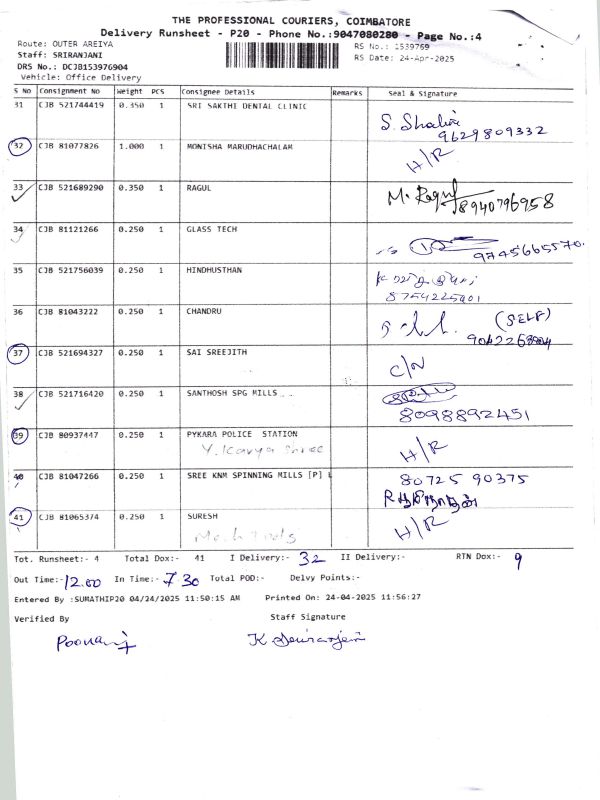 THE PROFESSIONAL COURIERS, COIMBATORE
Delivery Runsheet - P20 - Phone No.:9047080280 - Page No.:4
Route: OUTER AREIYA
RS No.: 1539769
Staff: SRIRANJANI
RS Date: 24-Apr-2025
DRS No.: DCJB153976904
Vehicle: Office Delivery
S No Consignment No Weight PCS Consignee Details Remarks Seal & Signature
31 CJB 521744419 0.350 1 SRI SAKTHI DENTAL CLINIC S. Shalini
9629809332
32 CJB 81077826 1.000 1 MONISHA MARUDHACHALAM H/R
33 CJB 521689290 0.350 1 RAGUL M. Ragul
8940796958
34 CJB 81121266 0.250 1 GLASS TECH
9745665570.
35 CJB 521756039 0.250 1 HINDHUSTHAN
8754225901
36 CJB 81043222 0.250 1 CHANDRU (SELF)
37 CJB 521694327 0.250 1 SAI SREEJITH C/N
38 CJB 521716420 0.250 1 SANTHOSH SPG MILLS
8098892451
39 CJB 80937447 0.250 1 PYKARA POLICE STATION H/R
Y. Kavya Shree
40 CJB 81047266 0.250 1 SREE KNM SPINNING MILLS [P] L 80725 90375
41 CJB 81065374 0.250 1 SURESH H/R
Tot. Runsheet:- 4 Total Dox:- 41 I Delivery:- 32 II Delivery:- RTN Dox:- 9
Out Time:- 12.00 In Time:- 7.30 Total POD:- Delvy Points:-
Entered By :SUMATHIP20 04/24/2025 11:50:15 AM Printed On: 24-04-2025 11:56:27
Verified By Staff Signature